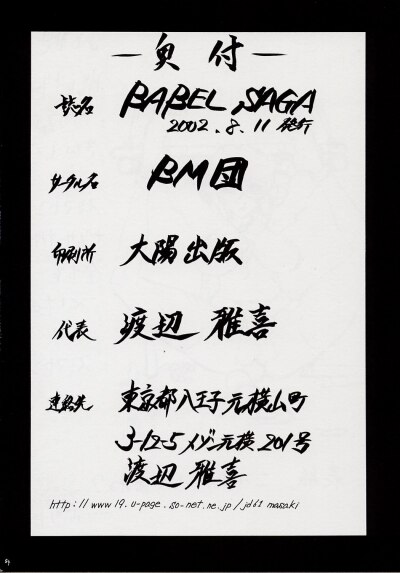 —奥付—
誌名 BABEL SAGA
2002.8.11 発行
サークル名 BM団
印刷所 大陽出版
代表 渡辺 雅喜
連絡先 東京都八王子元横山町
3-12-5 メゾン元横 201号
渡辺 雅喜
http://www19.u-page.so-net.ne.jp/jd61 masaki
9